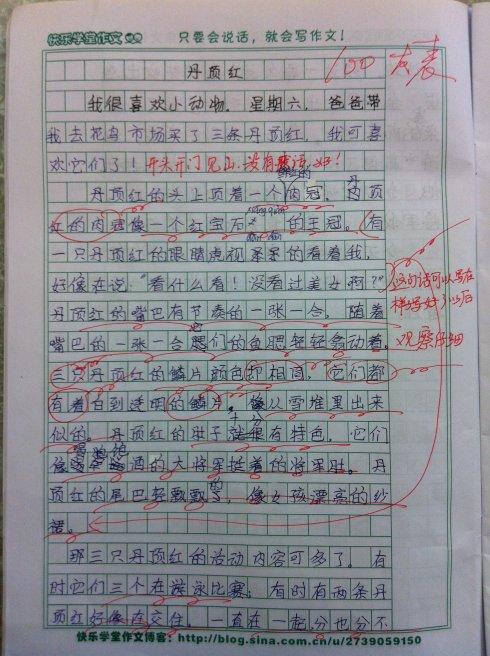 快乐学堂作文 只要会说话，就会写作文！
100 发表
丹顶红
我很喜欢小动物。星期六，爸爸带
我去花鸟市场买了三条丹顶红，我可喜
欢它们了！开头开门见山，没有废话，好！
丹顶红的头上顶着一个肉冠，丹顶
红的肉冠像一个红宝石 的王冠。有
一只丹顶红的眼睛虎视 的看着我，
好像在说：“看什么看！没看过美女啊？”
这句话可以写在
丹顶红的嘴巴有节奏的一张一合。随着
嘴巴的一张一合 它们的鱼鳃轻轻 动着。
观察仔细
三只丹顶红的鳞片颜色却相同，它们都
有着白到透明的鳞片。像从雪堆里出来
似的。丹顶红的肚子十分有特色，它们
像 酒的大将军挺着的将军肚。丹
顶红的尾巴轻飘飘的，像女孩漂亮的纱
裙。
那三只丹顶红的活动内容可多了。有
时它们三个在游泳比赛；有时有两条丹
顶红好像在交往。一直在一起，分也分不
快乐学堂作文博客：http://blog.sina.com.cn/u/2739059150